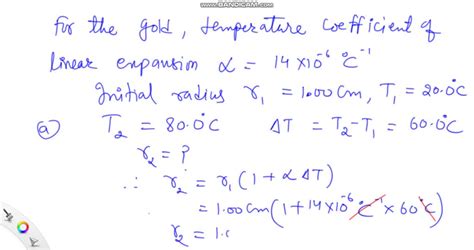 WWW.BANDICAM.COM
For the gold, temperature coefficient of
linear expansion α = 14×10⁻⁶ °C⁻¹
Initial radius r₁ = 1.00 cm, T₁ = 20.0°C
(a) T₂ = 80.0°C ΔT = T₂-T₁ = 60.0°C
r₂ = ?
∴ r₂ = r₁(1+αΔT)
= 1.00cm(1+14×10⁻⁶ °C⁻¹×60°C)
r₂ = 1.0